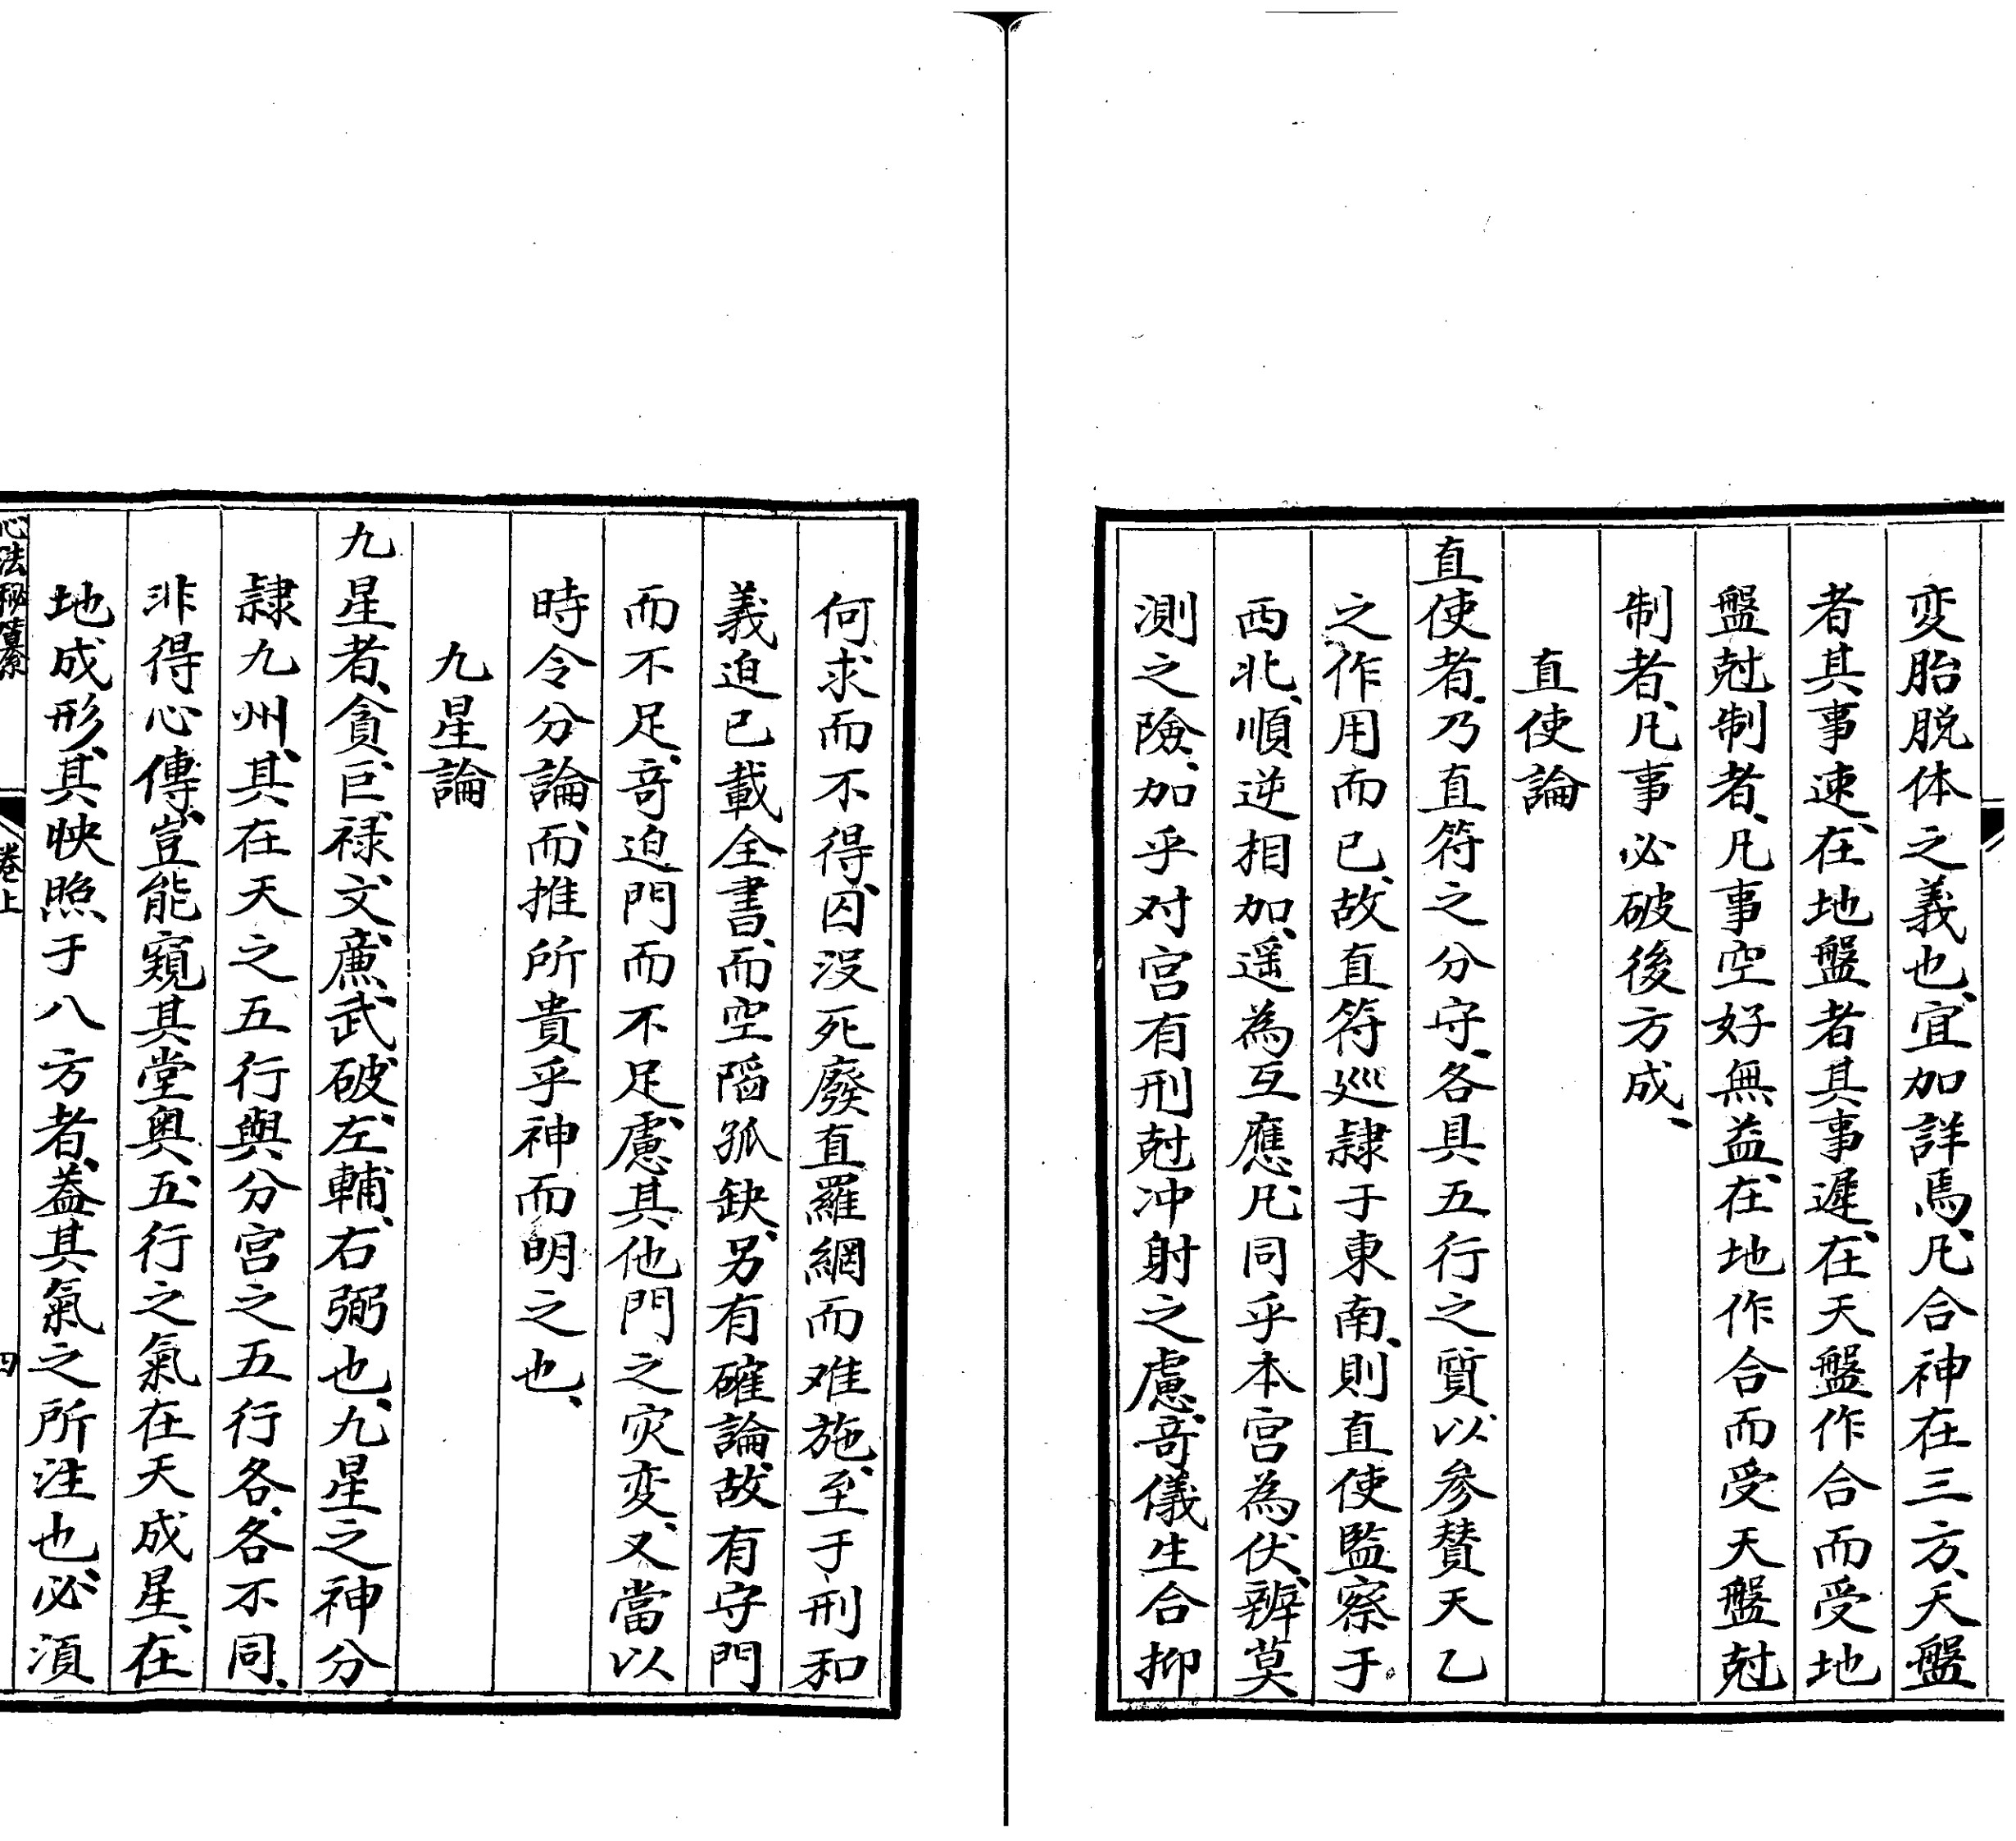 変胎脱体之義也、宜加詳焉、凡合神在三方、天盤
者其事速、在地盤者其事遲、在天盤作合而受地
盤尅制者、凡事空好無益、在地作合而受天盤尅
制者、凡事必破後方成、
直使論
直使者、乃直符之分守、各具五行之質以参賛天乙
之作用而已、故直符巡隷于東南、則直使監察于
西北、順逆相加、遥為互應、凡同乎本宮為伏、辨莫
測之險、加乎对宮有刑尅冲射之慮、竒儀生合抑
何求而不得、囚没死廢直羅網而难施、至于刑和
義迫已載全書、而空䧟孤缺、另有確論、故有守門
而不足、竒迫門而不足、慮其他門之灾変、又當以
時令分論、而推所貴乎神而明之也、
九星論
九星者、貪、巨、禄、文、亷、武、破、左輔、右弼也、九星之神分
隷九州、其在天之五行與分宮之五行各、各不同、
非得心傳、豈能窺其堂奥、五行之氣在天成星、在
地成形、其映照于八方者、葢其氣之所注也、必須
心法秘纂 卷上 四